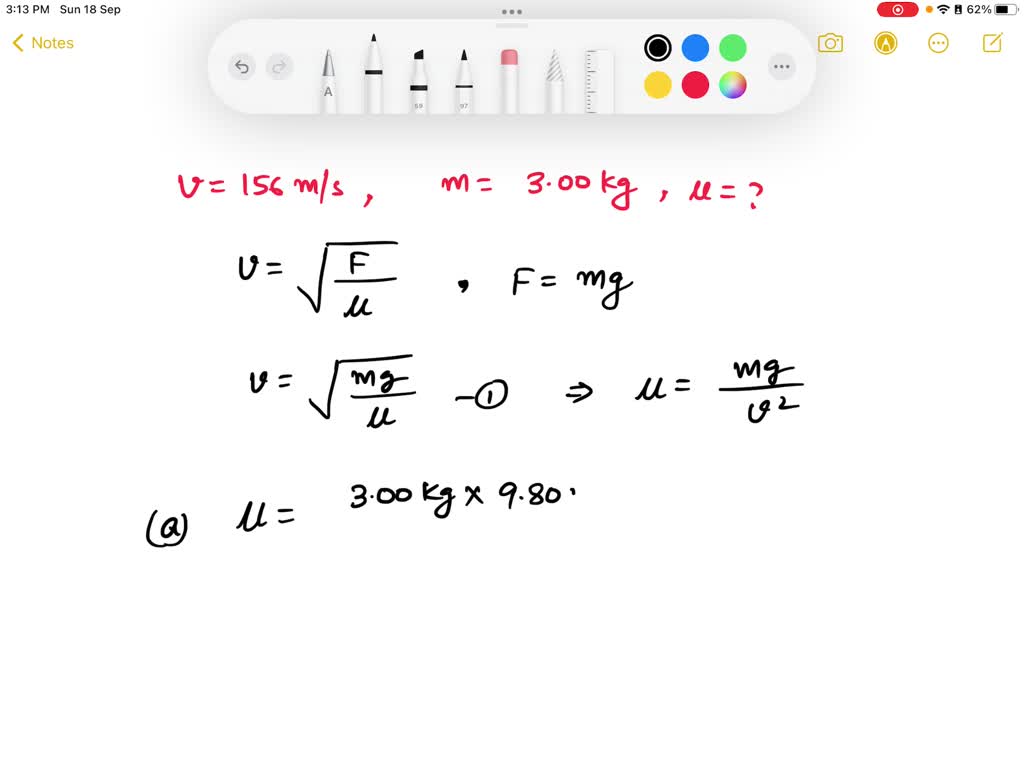 3:13 PM Sun 18 Sep 62%
Notes
A 59 97
v = 156 m/s, m = 3.00 kg, μ = ?
v = √(F/μ) , F = mg
v = √(mg/μ) —① ⇒ μ = mg/v²
(a) μ = 3.00 kg × 9.80